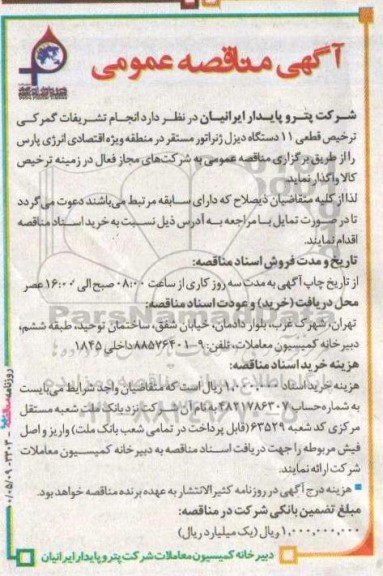 آگهی مناقصه عمومی
شرکت پترو پایدار ایرانیان در نظر دارد انجام تشریفات گمرکی
ترخیص قطعی ۱۱ دستگاه دیزل ژنراتور مستقر در منطقه ویژه اقتصادی انرژی پارس
را از طریق برگزاری مناقصه عمومی به شرکت‌های مجاز فعال در زمینه ترخیص
کالا واگذار نماید.
لذا از کلیه متقاضیان ذیصلاح که دارای سابقه مرتبط می‌باشند دعوت می‌گردد
تا در صورت تمایل با مراجعه به آدرس ذیل نسبت به خرید اسناد مناقصه
اقدام نمایند.
تاریخ و مدت فروش اسناد مناقصه:
از تاریخ چاپ آگهی به مدت سه روز کاری از ساعت ۰۸:۰۰ صبح الی ۱۶:۰۰ عصر
محل دریافت (خرید) و عودت اسناد مناقصه:
تهران، شهرک غرب، بلوار دادمان، خیابان شفق، ساختمان توحید، طبقه ششم،
دبیرخانه کمیسیون معاملات، تلفن: ۹-۸۸۵۷۶۴۰۱ داخلی ۱۸۴۵
هزینه خرید اسناد مناقصه:
هزینه خرید اسناد ریال است که متقاضیان واجد شرایط می‌بایست
به شماره حساب ۴۸۲۱۷۸۶۳۰۷ به نام آن شرکت نزد بانک ملت شعبه مستقل
مرکزی کد شعبه ۶۳۵۲۹ (قابل پرداخت در تمامی شعب بانک ملت) واریز و اصل
فیش مربوطه را جهت دریافت اسناد مناقصه به دبیرخانه کمیسیون معاملات
شرکت ارائه نمایند.
هزینه درج آگهی در روزنامه کثیرالانتشار به عهده برنده مناقصه خواهد بود.
مبلغ تضمین بانکی شرکت در مناقصه:
۱,۰۰۰,۰۰۰,۰۰۰ ریال (یک میلیارد ریال)
دبیرخانه کمیسیون معاملات شرکت پترو پایدار ایرانیان
ParsNamadData